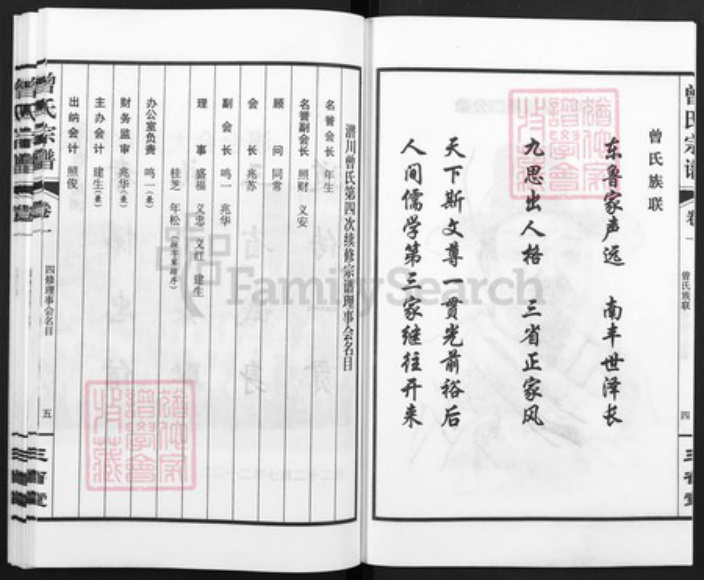 曾氏宗谱
卷一
曾氏族联
四
三省堂
曾氏族联
东鲁家声远 南丰世泽长
九思出人格 三省正家风
天下斯文尊一贯光前裕后
人间儒学第三家继往开来
川曾氏第四次续修宗谱理事会名目
名誉会长 年生
名誉副会长 照财 义安
顾问 同常
会长 兆苏
副会长 鸣一 兆华
理事 盛福 义忠 义红 建生
桂芝 年松
办公室负责 鸣一(兼)
财务监审 兆华(兼)
主办会计 建生(兼)
出纳会计 照俊
曾氏宗谱
卷一
四修理事会名目
五
三省堂
FamilySearch